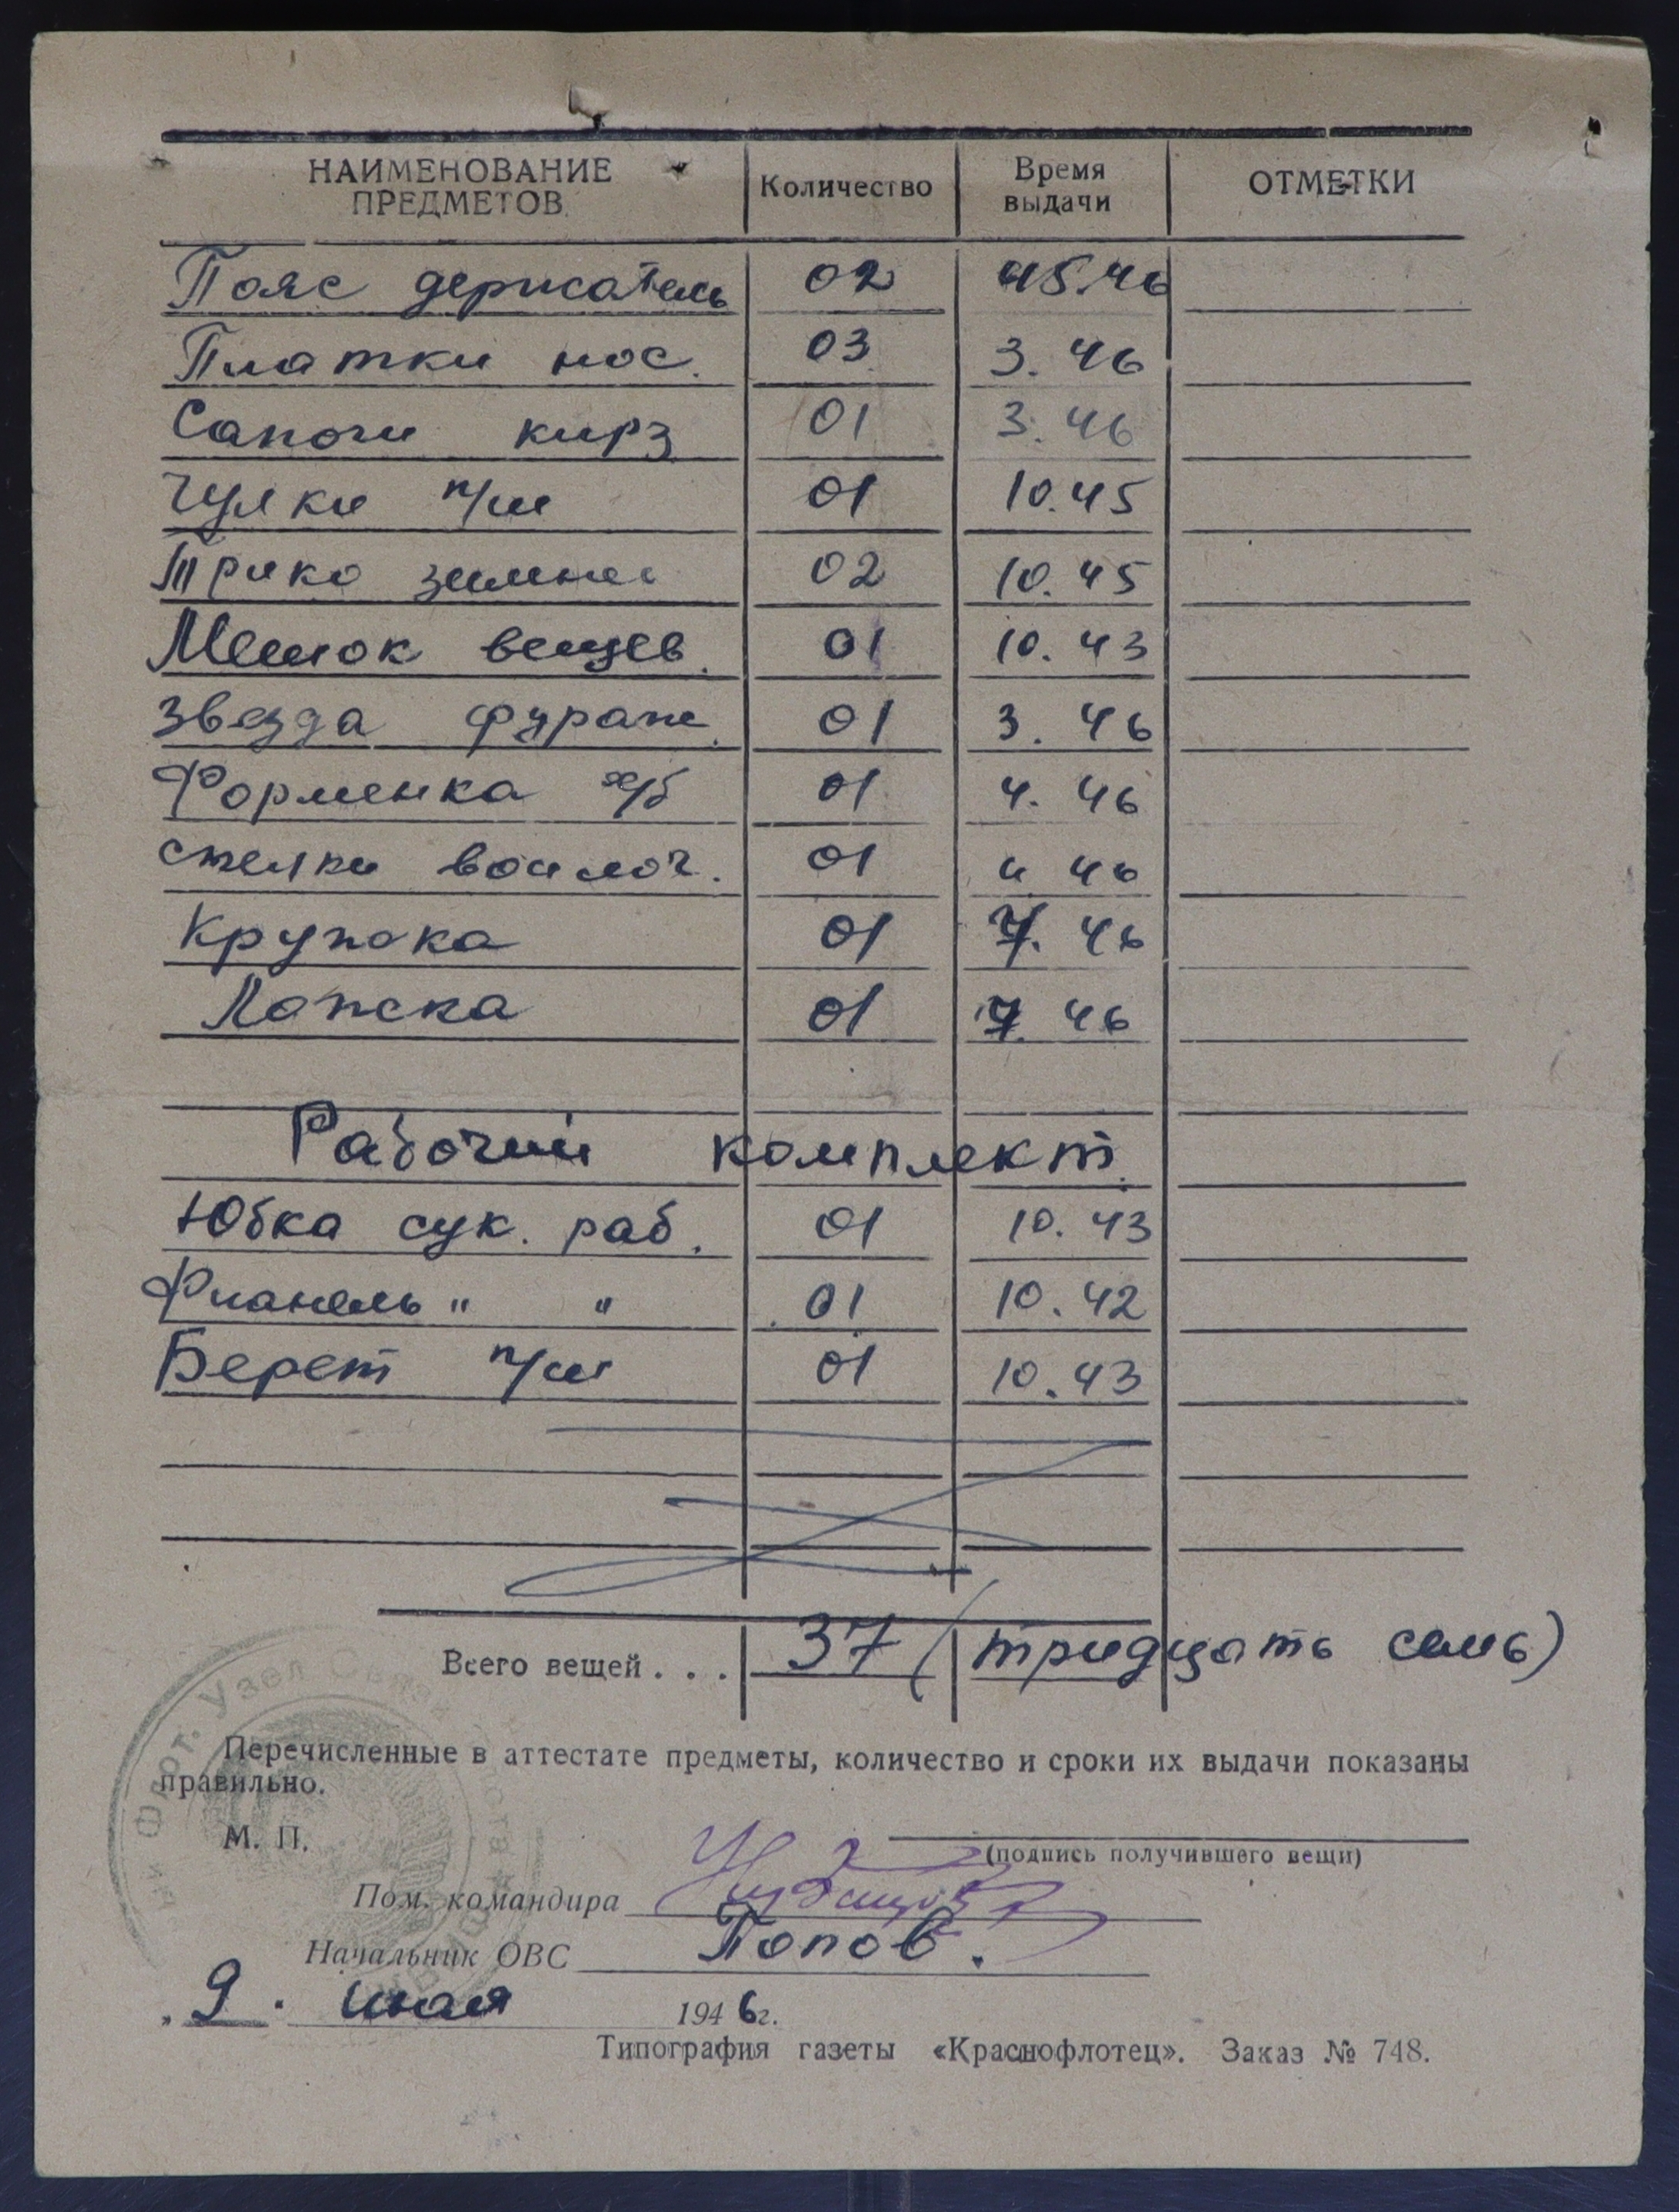 НАИМЕНОВАНИЕ ПРЕДМЕТОВ Количество Время выдачи ОТМЕТКИ
Пояс держатель 02 45.46
Платки нос. 03 3. 46
Сапоги кирз 01 3. 46
Чулки п/ш 01 10.45
Трико зимнее 02 10.45
Мешок вещев. 01 10. 43
Звезда фураж. 01 3. 46
Форменка х/б 01 4. 46
стелки войлоч. 01 4 46
Кружка 01 7. 46
Ложка 01 7. 46
Рабочий комплект.
Юбка сук. раб. 01 10. 43
Фланель " " 01 10. 42
Берет п/ш 01 10.43
Всего вещей . . . 37 (тридцать семь)
Перечисленные в аттестате предметы, количество и сроки их выдачи показаны
правильно.
М. П.
(подпись получившего вещи)
Пом. командира
Начальник ОВС Попов.
„9" июля 1946г.
Типография газеты «Краснофлотец». Заказ № 748.
Флот. Узел Связи